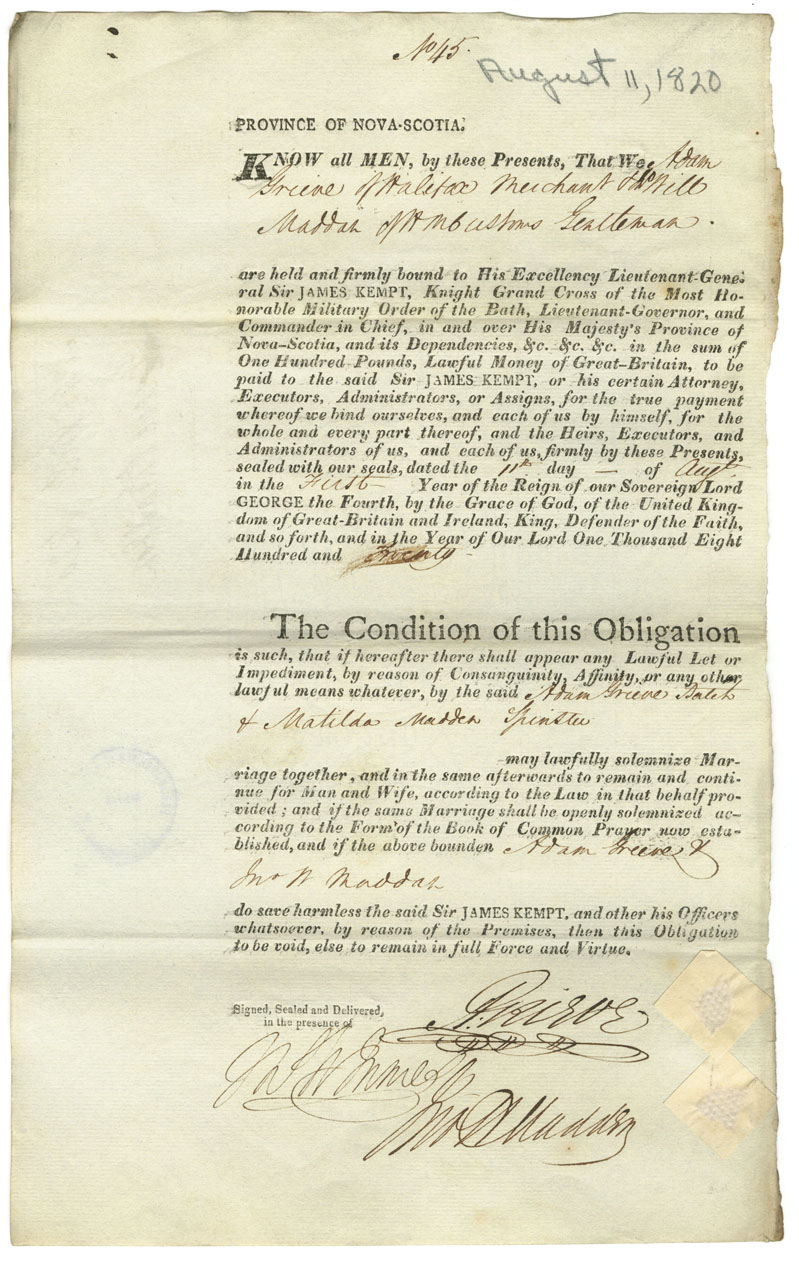 No 45.
August 11, 1820
PROVINCE OF NOVA-SCOTIA.
KNOW all MEN, by these Presents, That We Adam
Grieve of Halifax Merchant & Will
Maddan of HM Customs Gentleman.
are held and firmly bound to His Excellency Lieutenant-Gene-
ral Sir JAMES KEMPT, Knight Grand Cross of the Most Ho-
norable Military Order of the Bath, Lieutenant-Governor, and
Commander in Chief, in and over His Majesty's Province of
Nova-Scotia, and its Dependencies, &c. &c. &c. in the sum of
One Hundred Pounds, Lawful Money of Great-Britain, to be
paid to the said Sir JAMES KEMPT, or his certain Attorney,
Executors, Administrators, or Assigns, for the true payment
whereof we bind ourselves, and each of us by himself, for the
whole and every part thereof, and the Heirs, Executors, and
Administrators of us, and each of us, firmly by these Presents,
sealed with our seals, dated the 11th day — of Augt.
in the First Year of the Reign of our Sovereign Lord
GEORGE the Fourth, by the Grace of God, of the United King-
dom of Great-Britain and Ireland, King, Defender of the Faith,
and so forth, and in the Year of Our Lord One Thousand Eight
Hundred and Twenty
The Condition of this Obligation
is such, that if hereafter there shall appear any Lawful Let or
Impediment, by reason of Consanguinity, Affinity, or any other
lawful means whatever, by the said Adam Grieve Batch
& Matilda Madden Spinster
may lawfully solemnize Mar-
riage together, and in the same afterwards to remain and conti-
nue for Man and Wife, according to the Law in that behalf pro-
vided; and if the same Marriage shall be openly solemnized ac-
cording to the Form of the Book of Common Prayer now esta-
blished, and if the above bounden Adam Grieve &
Jno W Maddan
do save harmless the said Sir JAMES KEMPT, and other his Officers
whatsoever, by reason of the Premises, then this Obligation
to be void, else to remain in full Force and Virtue.
Signed, Sealed and Delivered,
in the presence of
A. Grieve
Jno W Madden